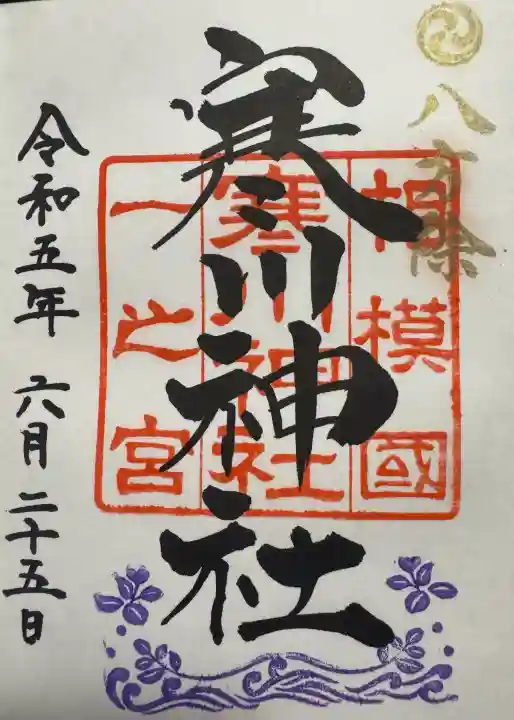 八方除
相模國
寒川神社
一之宮
寒川神社
令和五年 六月二十五日